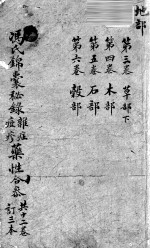 地部
第三卷 草部下
第四卷 木部
第五卷 石部
第六卷 穀部
馮氏錦囊秘錄 雜症 痘疹 藥性合參 共十二卷 訂三本